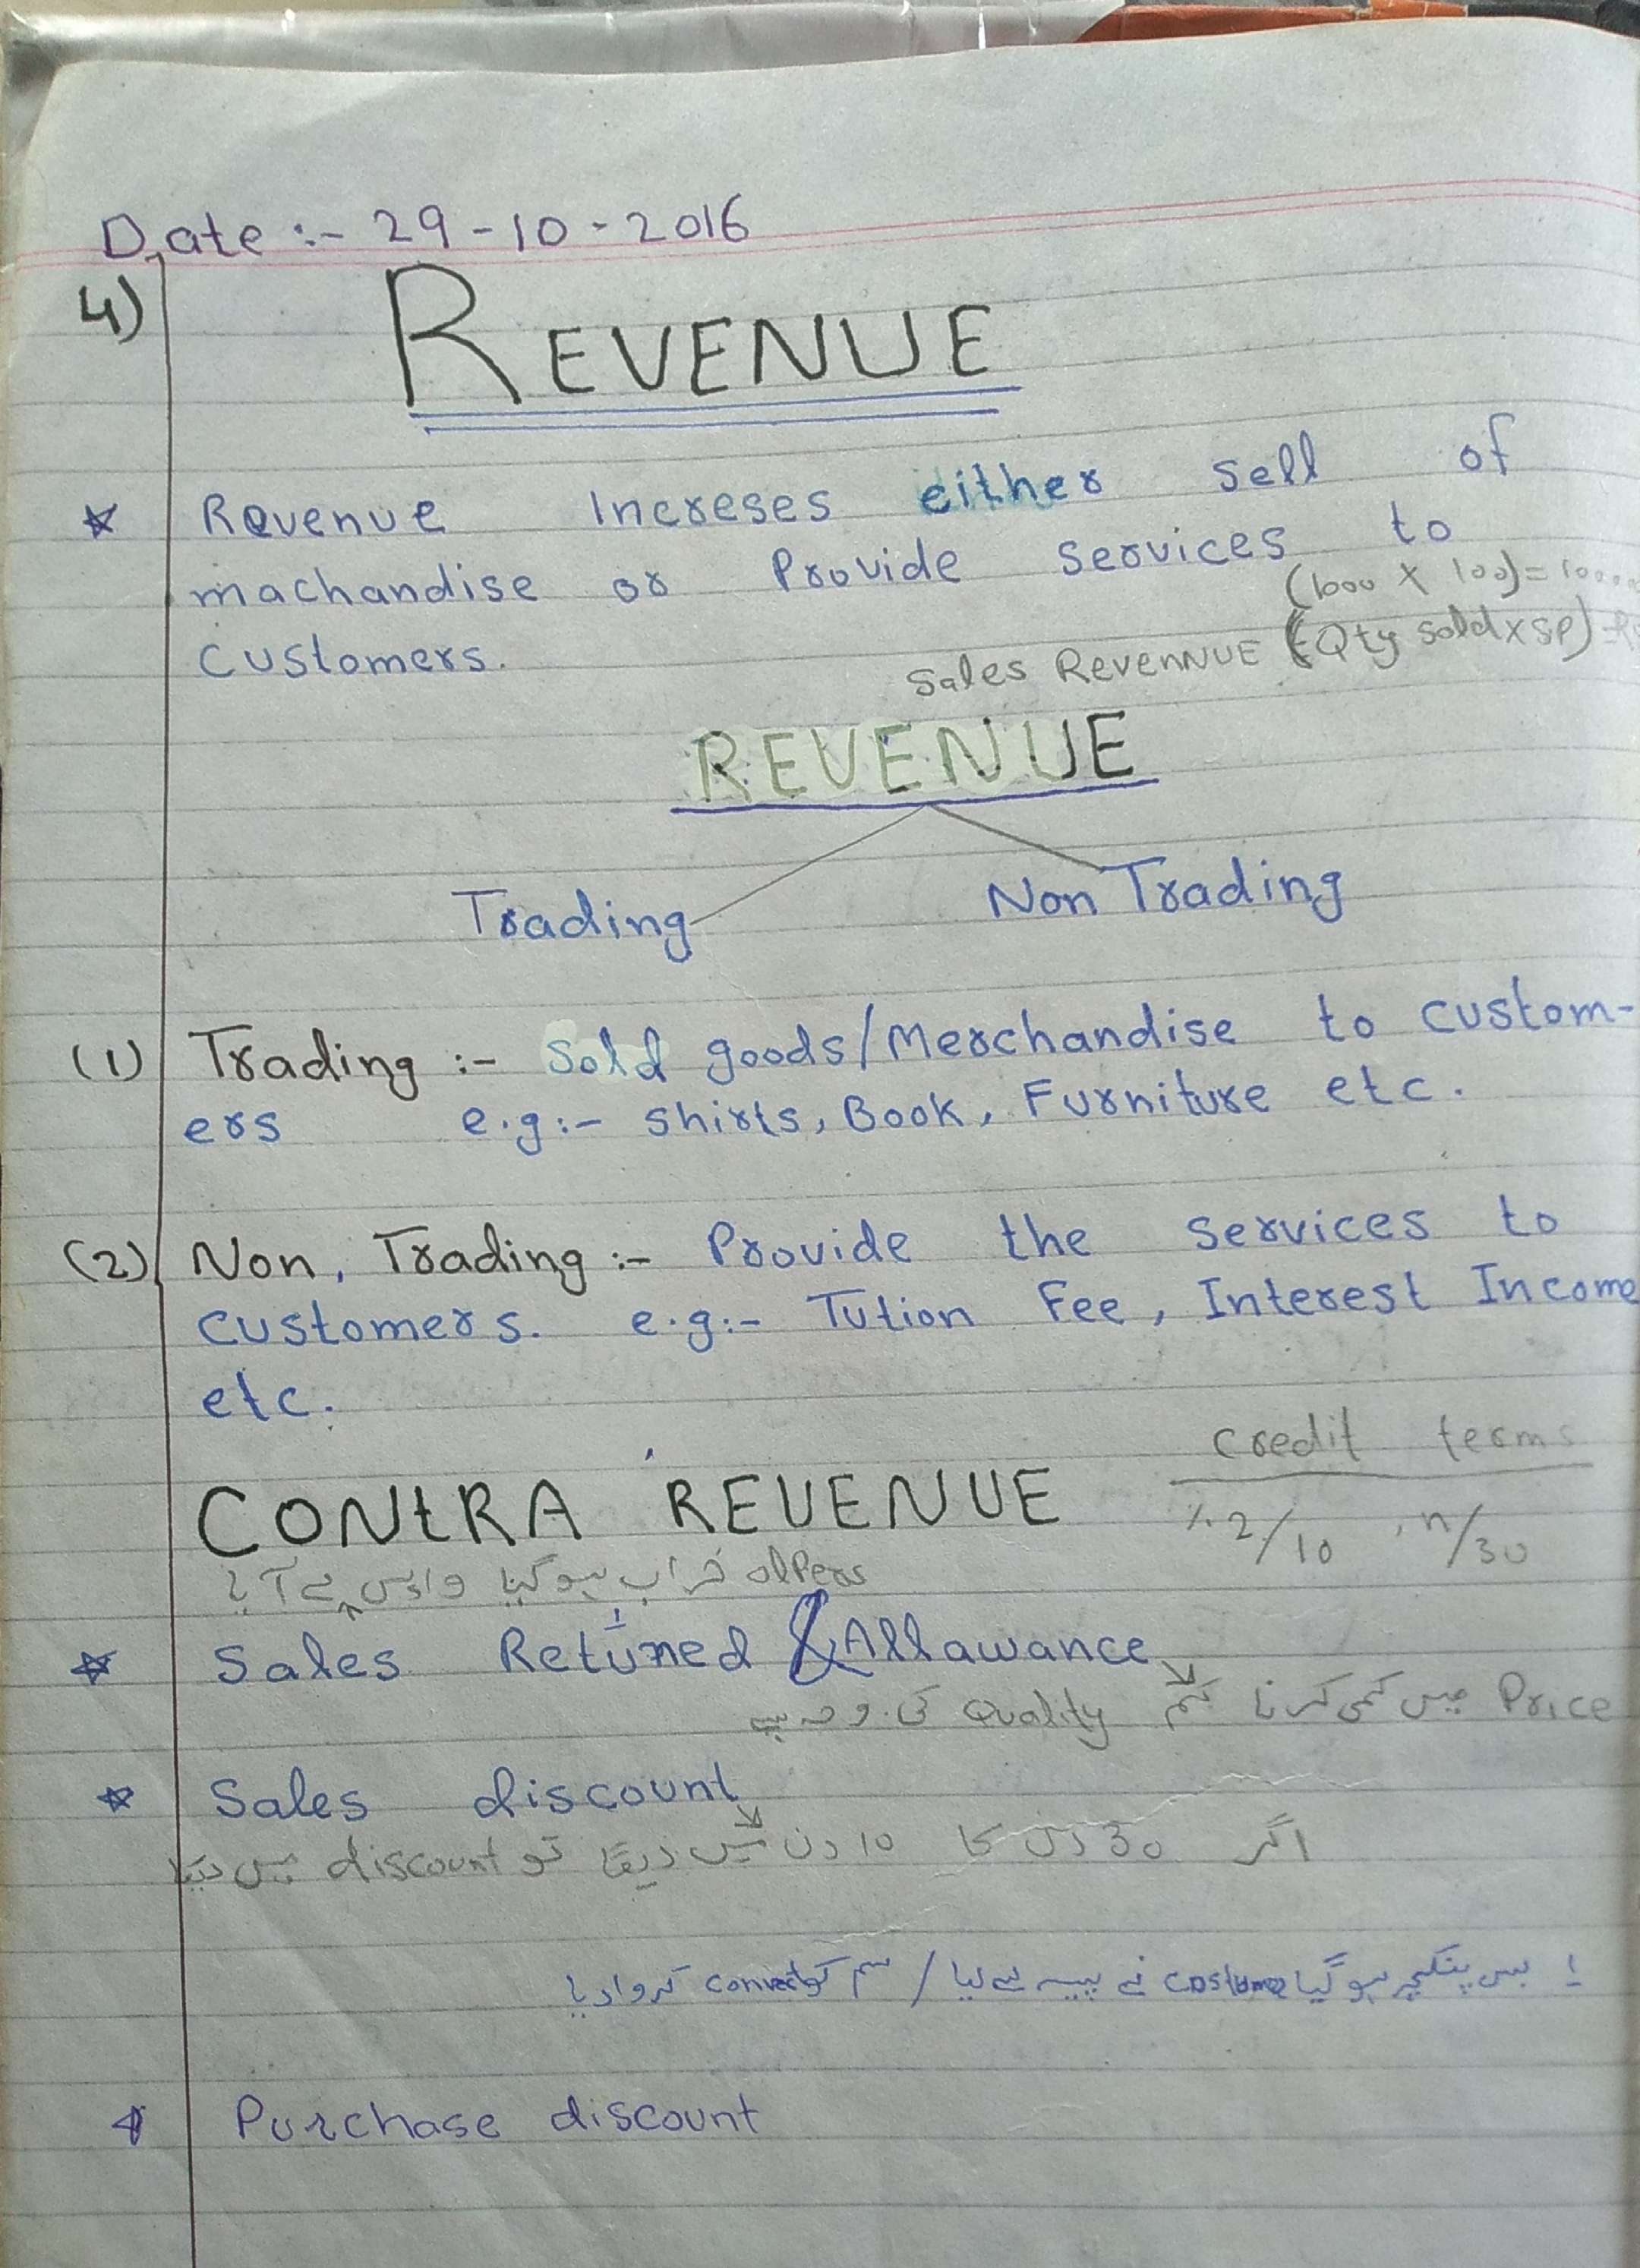 Date :- 29-10-2016
4)
REVENUE
Revenue Increses either sell of
machandise or Provide services to
customers.
(1000 X 100) = 10000
Sales RevenNUE (Qty sold x SP)
REVENUE
Trading
Non Trading
(1) Trading :- Sold goods/Merchandise to custom-
ers e.g:- shirts, Book, Furniture etc.
(2) Non, Trading :- Provide the services to
customers. e.g:- Tution Fee, Interest Income
etc.
credit terms
CONtRA REVENUE
%2/10 , n/30
olpers خراب ہو گیا واپس لے آیا
Sales Returned & Allawance
Price میں کمی کرنا کم Quality کی وجہ سے
Sales discount
اگر 30 دن کا 10 دن میں دیتا تو discount میں دیتا
بس پنکچر ہو گیا costumer نے پیسہ لے لیا / سم کو convert کروا دیا
Purchase discount